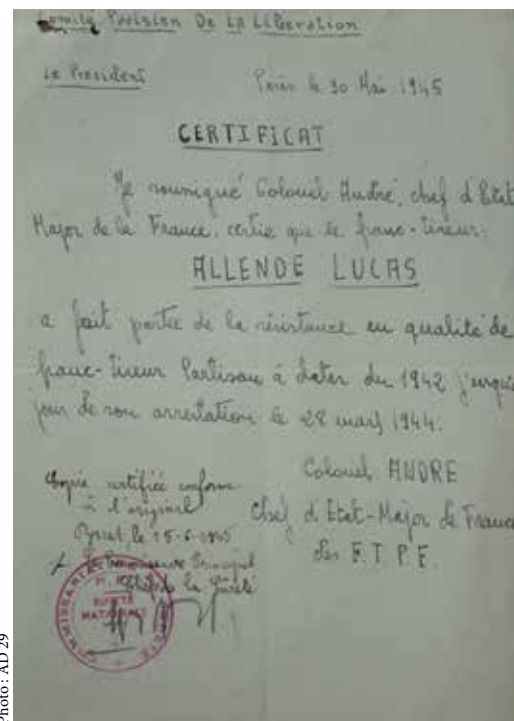 Comité Parisien De La Libération
Le Président
Paris le 30 Mai 1945
CERTIFICAT
Je soussigné Colonel André, chef d'Etat
Major de la France, certie que le franc-tireur:
ALLENDE LUCAS
a fait partie de la résistance en qualité de
franc-tireur Partisan à dater du 1942 jusqu'
jour de son arrestation le 28 mars 1944.
Colonel ANDRE
Chef d'Etat-Major de France
des F.T.P.F.
Copie certifiée conforme
à l'original
Brest, le 15-6-1945
Le Commissaire Principal
Chef de la Sûreté
SURETÉ
NATIONALE
Photo : AD 29